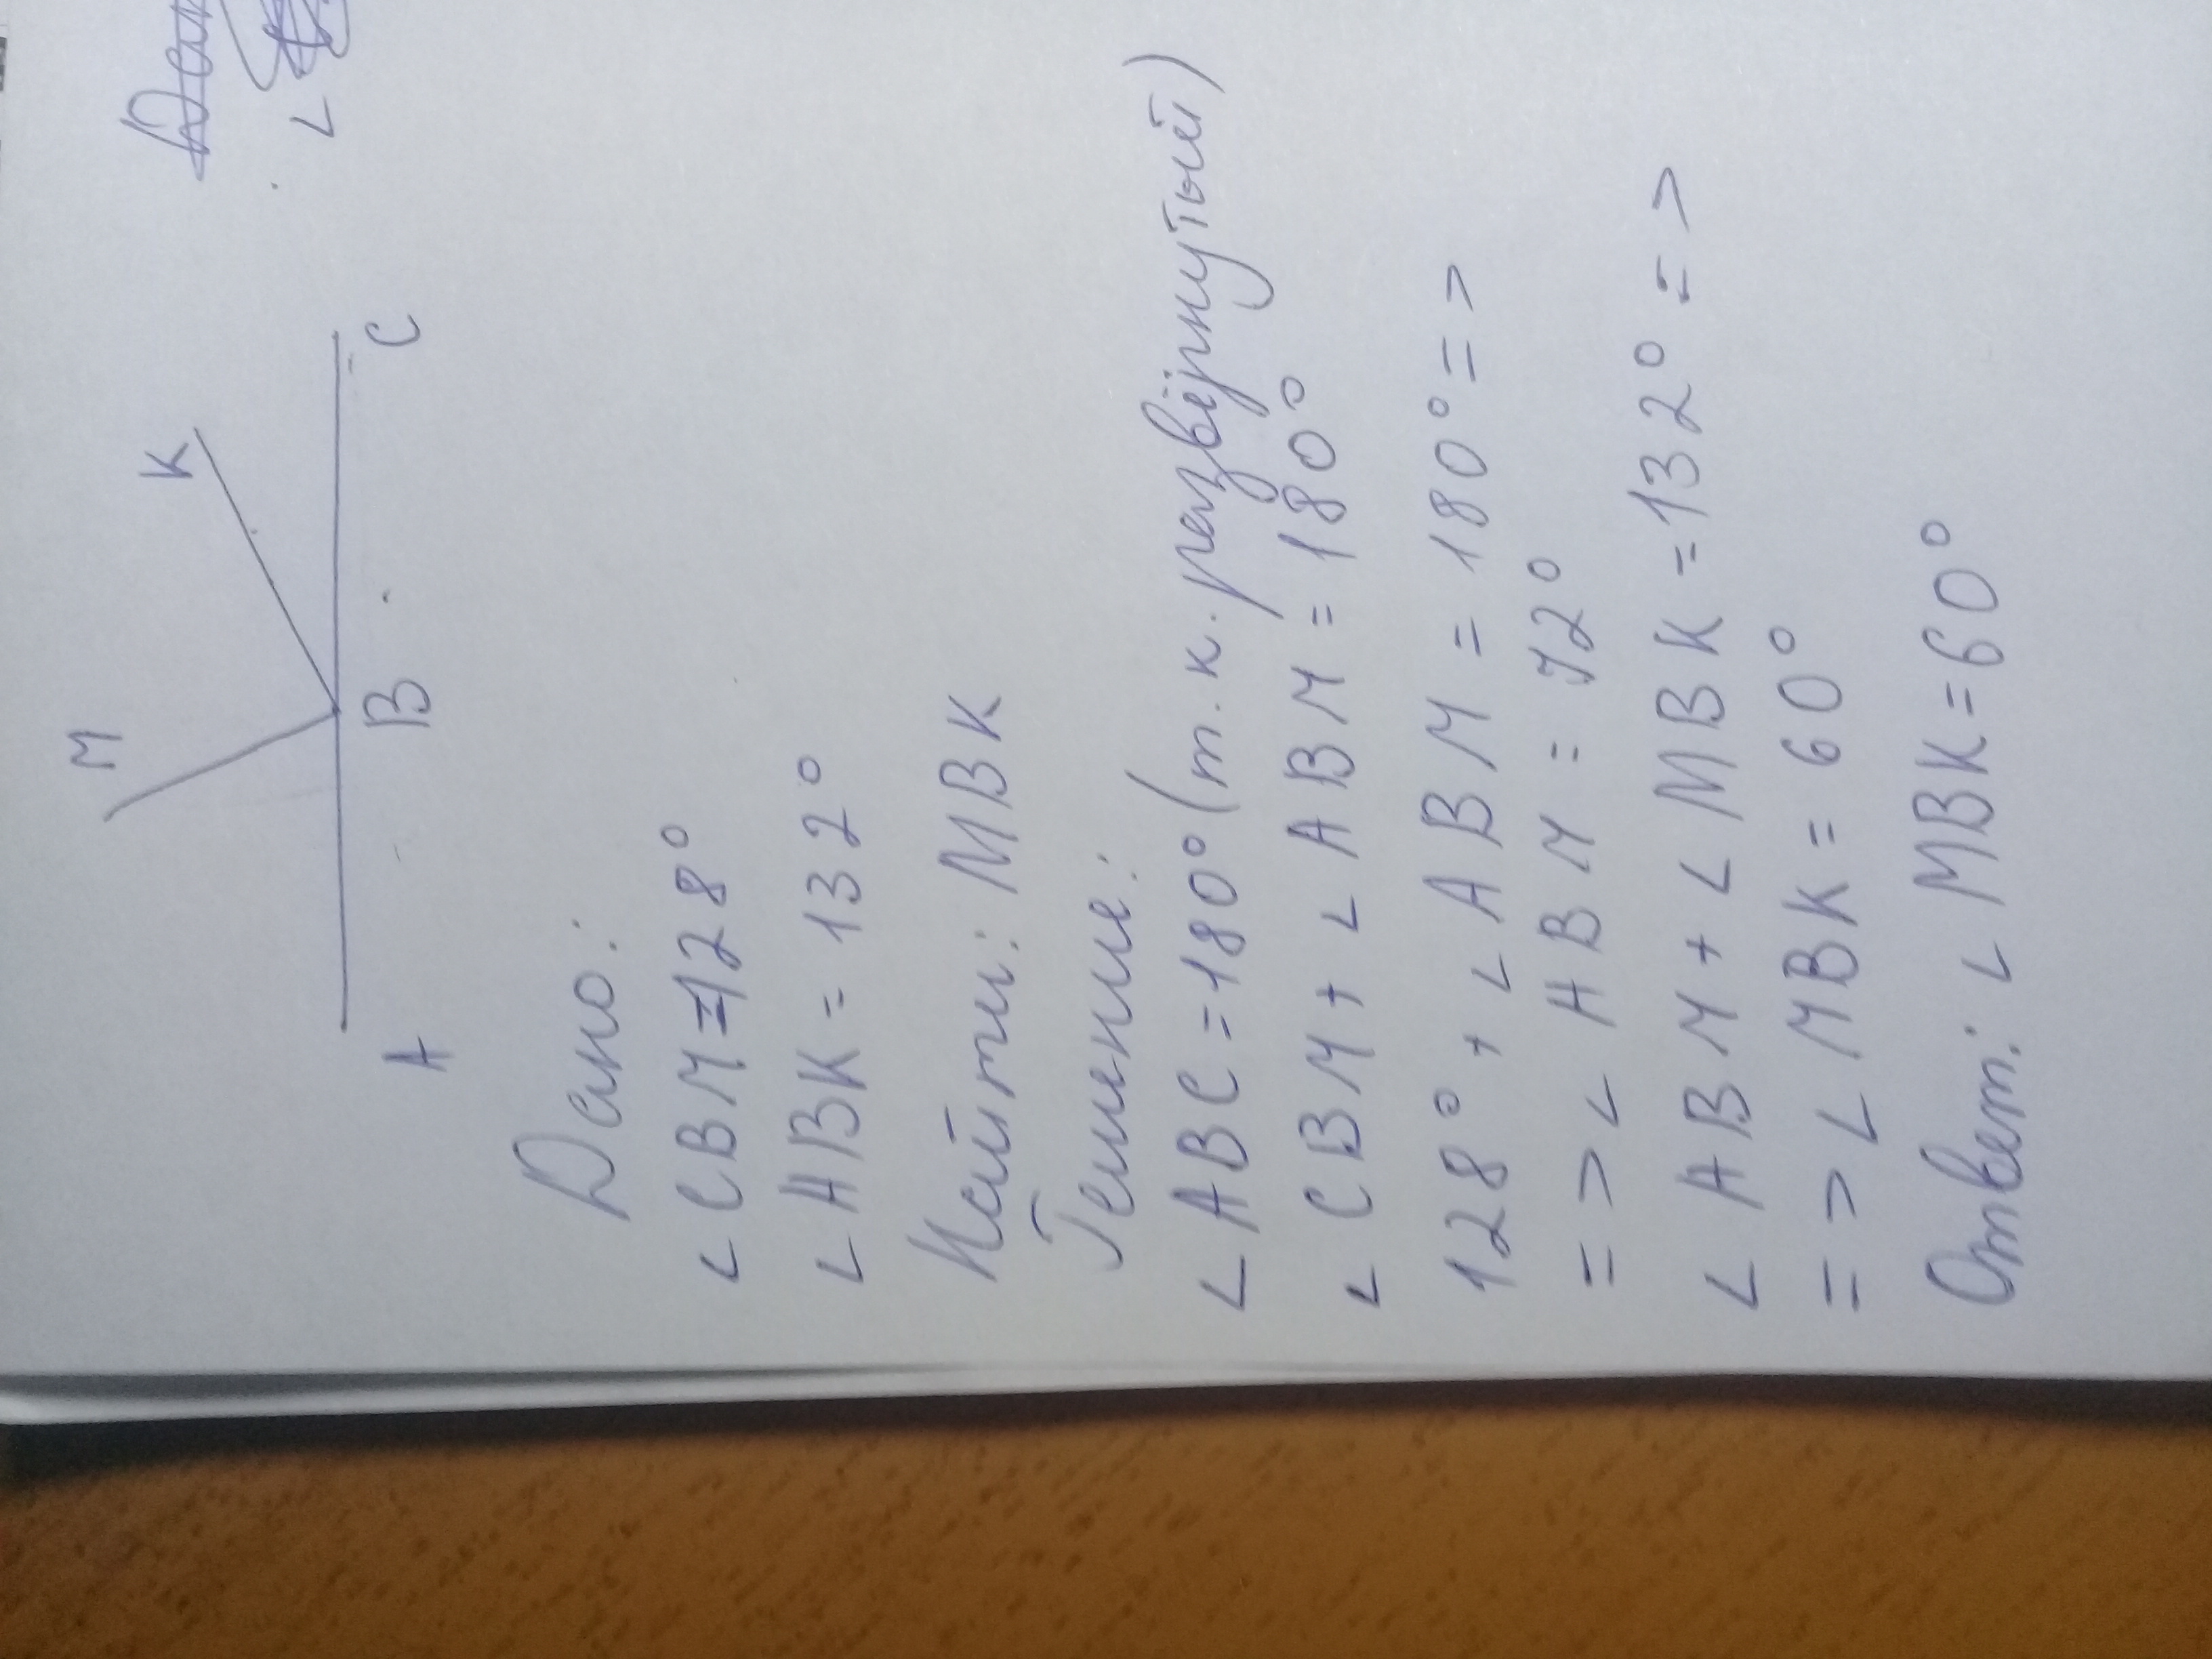 M
K
A
B
C
Дано:
∟CBM=128°
∟ABK=132°
Найти: MBK
Решение:
∟ABC=180°(т.к. развёрнутый)
∟CBM+∟ABM=180°
128°+∟ABM=180°=>
=>∟ABM=72°
∟ABM+∟MBK=132°=>
=>∟MBK=60°
Ответ: ∟MBK=60°